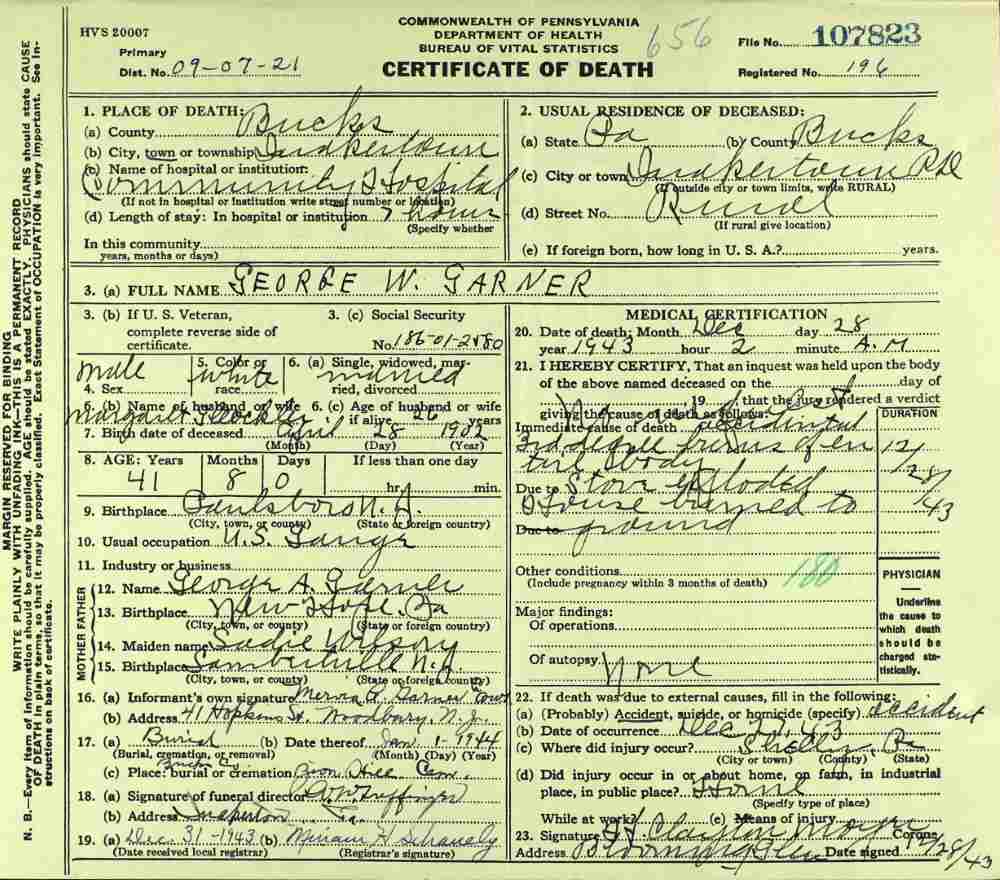 HVS 20007
COMMONWEALTH OF PENNSYLVANIA
DEPARTMENT OF HEALTH
BUREAU OF VITAL STATISTICS
CERTIFICATE OF DEATH
656
Primary
Dist. No. 09-07-21
File No. 107823
Registered No. 196
MARGIN RESERVED FOR BINDING
WRITE PLAINLY WITH UNFADING INK—THIS IS A PERMANENT RECORD
N. B.—Every item of information should be carefully supplied. AGE should be stated EXACTLY. PHYSICIANS should state CAUSE
OF DEATH in plain terms, so that it may be properly classified. Exact Statement of OCCUPATION is very important. See In-
structions on back of certificate.
1. PLACE OF DEATH:
(a) County Bucks
(b) City, town or township
(c) Name of hospital or institution:
Community Hospital
(If not in hospital or institution write street number or location)
(d) Length of stay: In hospital or institution 7 hours
(Specify whether
In this community
years, months or days)
2. USUAL RESIDENCE OF DECEASED:
(a) State Pa (b) County Bucks
(c) City or town
(If outside city or town limits, write RURAL)
(d) Street No. Rural
(If rural give location)
(e) If foreign born, how long in U. S. A.? years.
3. (a) FULL NAME GEORGE W. GARNER
3. (b) If U. S. Veteran,
complete reverse side of
certificate.
3. (c) Social Security
No. 186-01-2480
male
4. Sex
5. Color or
race white
6. (a) Single, widowed, mar-
ried, divorced married
6. (b) Name of husband or wife
Margaret
6. (c) Age of husband or wife
if alive 26 years
7. Birth date of deceased April 28 1902
(Month) (Day) (Year)
8. AGE: Years Months Days If less than one day
41 8 0 hr. min.
9. Birthplace Paulsboro N.J.
(City, town, or county) (State or foreign country)
10. Usual occupation U.S.
11. Industry or business
FATHER
12. Name George A. Garner
13. Birthplace New Hope, Pa
(City, town, or county) (State or foreign country)
MOTHER
14. Maiden name Sadie Wilson
15. Birthplace Lambertville N.J.
(City, town, or county) (State or foreign country)
16. (a) Informant's own signature Garner
(b) Address 41 Hopkins St. Woodbury, N.J.
17. (a) Burial (b) Date thereof Jan. 1-1944
(Burial, cremation, or removal) (Month) (Day) (Year)
Bucks Co
(c) Place: burial or cremation Hill Cem.
18. (a) Signature of funeral director
(b) Address Pa.
19. (a) Dec. 31-1943 (b) Miriam H.
(Date received local registrar) (Registrar's signature)
MEDICAL CERTIFICATION
20. Date of death: Month Dec day 28
year 1943 hour 2 minute A.M
21. I HEREBY CERTIFY, That an inquest was held upon the body
of the above named deceased on the day of
19 , that the jury rendered a verdict
giving the cause of death as follows:
DURATION
Immediate cause of death accidental
3rd degree burns of en
tire body
12/28/43
Due to Stove exploded
House burned to
Due to ground
Other conditions
(Include pregnancy within 3 months of death)
180
Major findings:
Of operations
Of autopsy None
PHYSICIAN
Underline
the cause to
which death
should be
charged sta-
tistically.
22. If death was due to external causes, fill in the following:
(a) (Probably) Accident, suicide, or homicide (specify) accident
(b) Date of occurrence Dec 27, 43
(c) Where did injury occur? Shelly, Pa
(City or town) (County) (State)
(d) Did injury occur in or about home, on farm, in industrial
place, in public place? Home
(Specify type of place)
While at work? (e) Means of injury
23. Signature Coroner
Address Blooming Glen Date signed 12/28/43